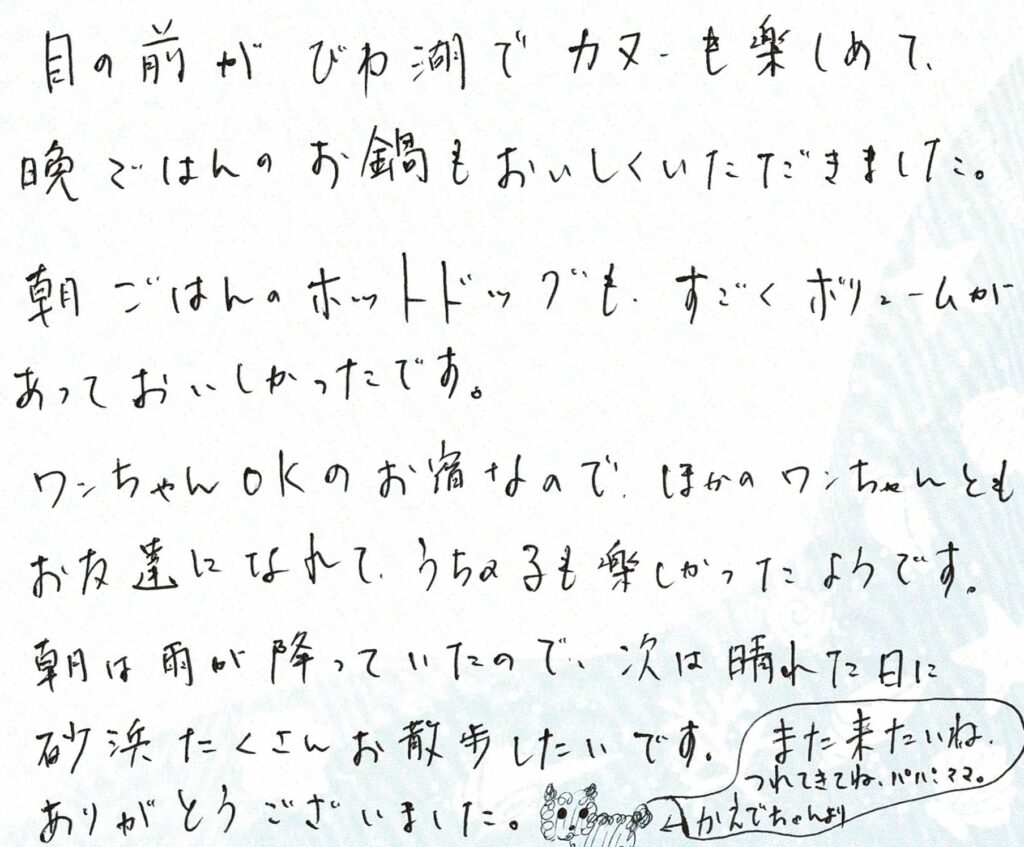 目の前がびわ湖でカヌーも楽しめて、
晩ごはんのお鍋もおいしくいただきました。
朝ごはんのホットドッグも、すごくボリュームが
あっておいしかったです。
ワンちゃんOKのお宿なので、ほかのワンちゃんとも
お友達になれて、うちの子も楽しかったようです。
朝は雨が降っていたので、次は晴れた日に
砂浜たくさんお散歩したいです。
ありがとうございました。
また来たいね、
つれてきてね、パパ、ママ。
かえでちゃんより